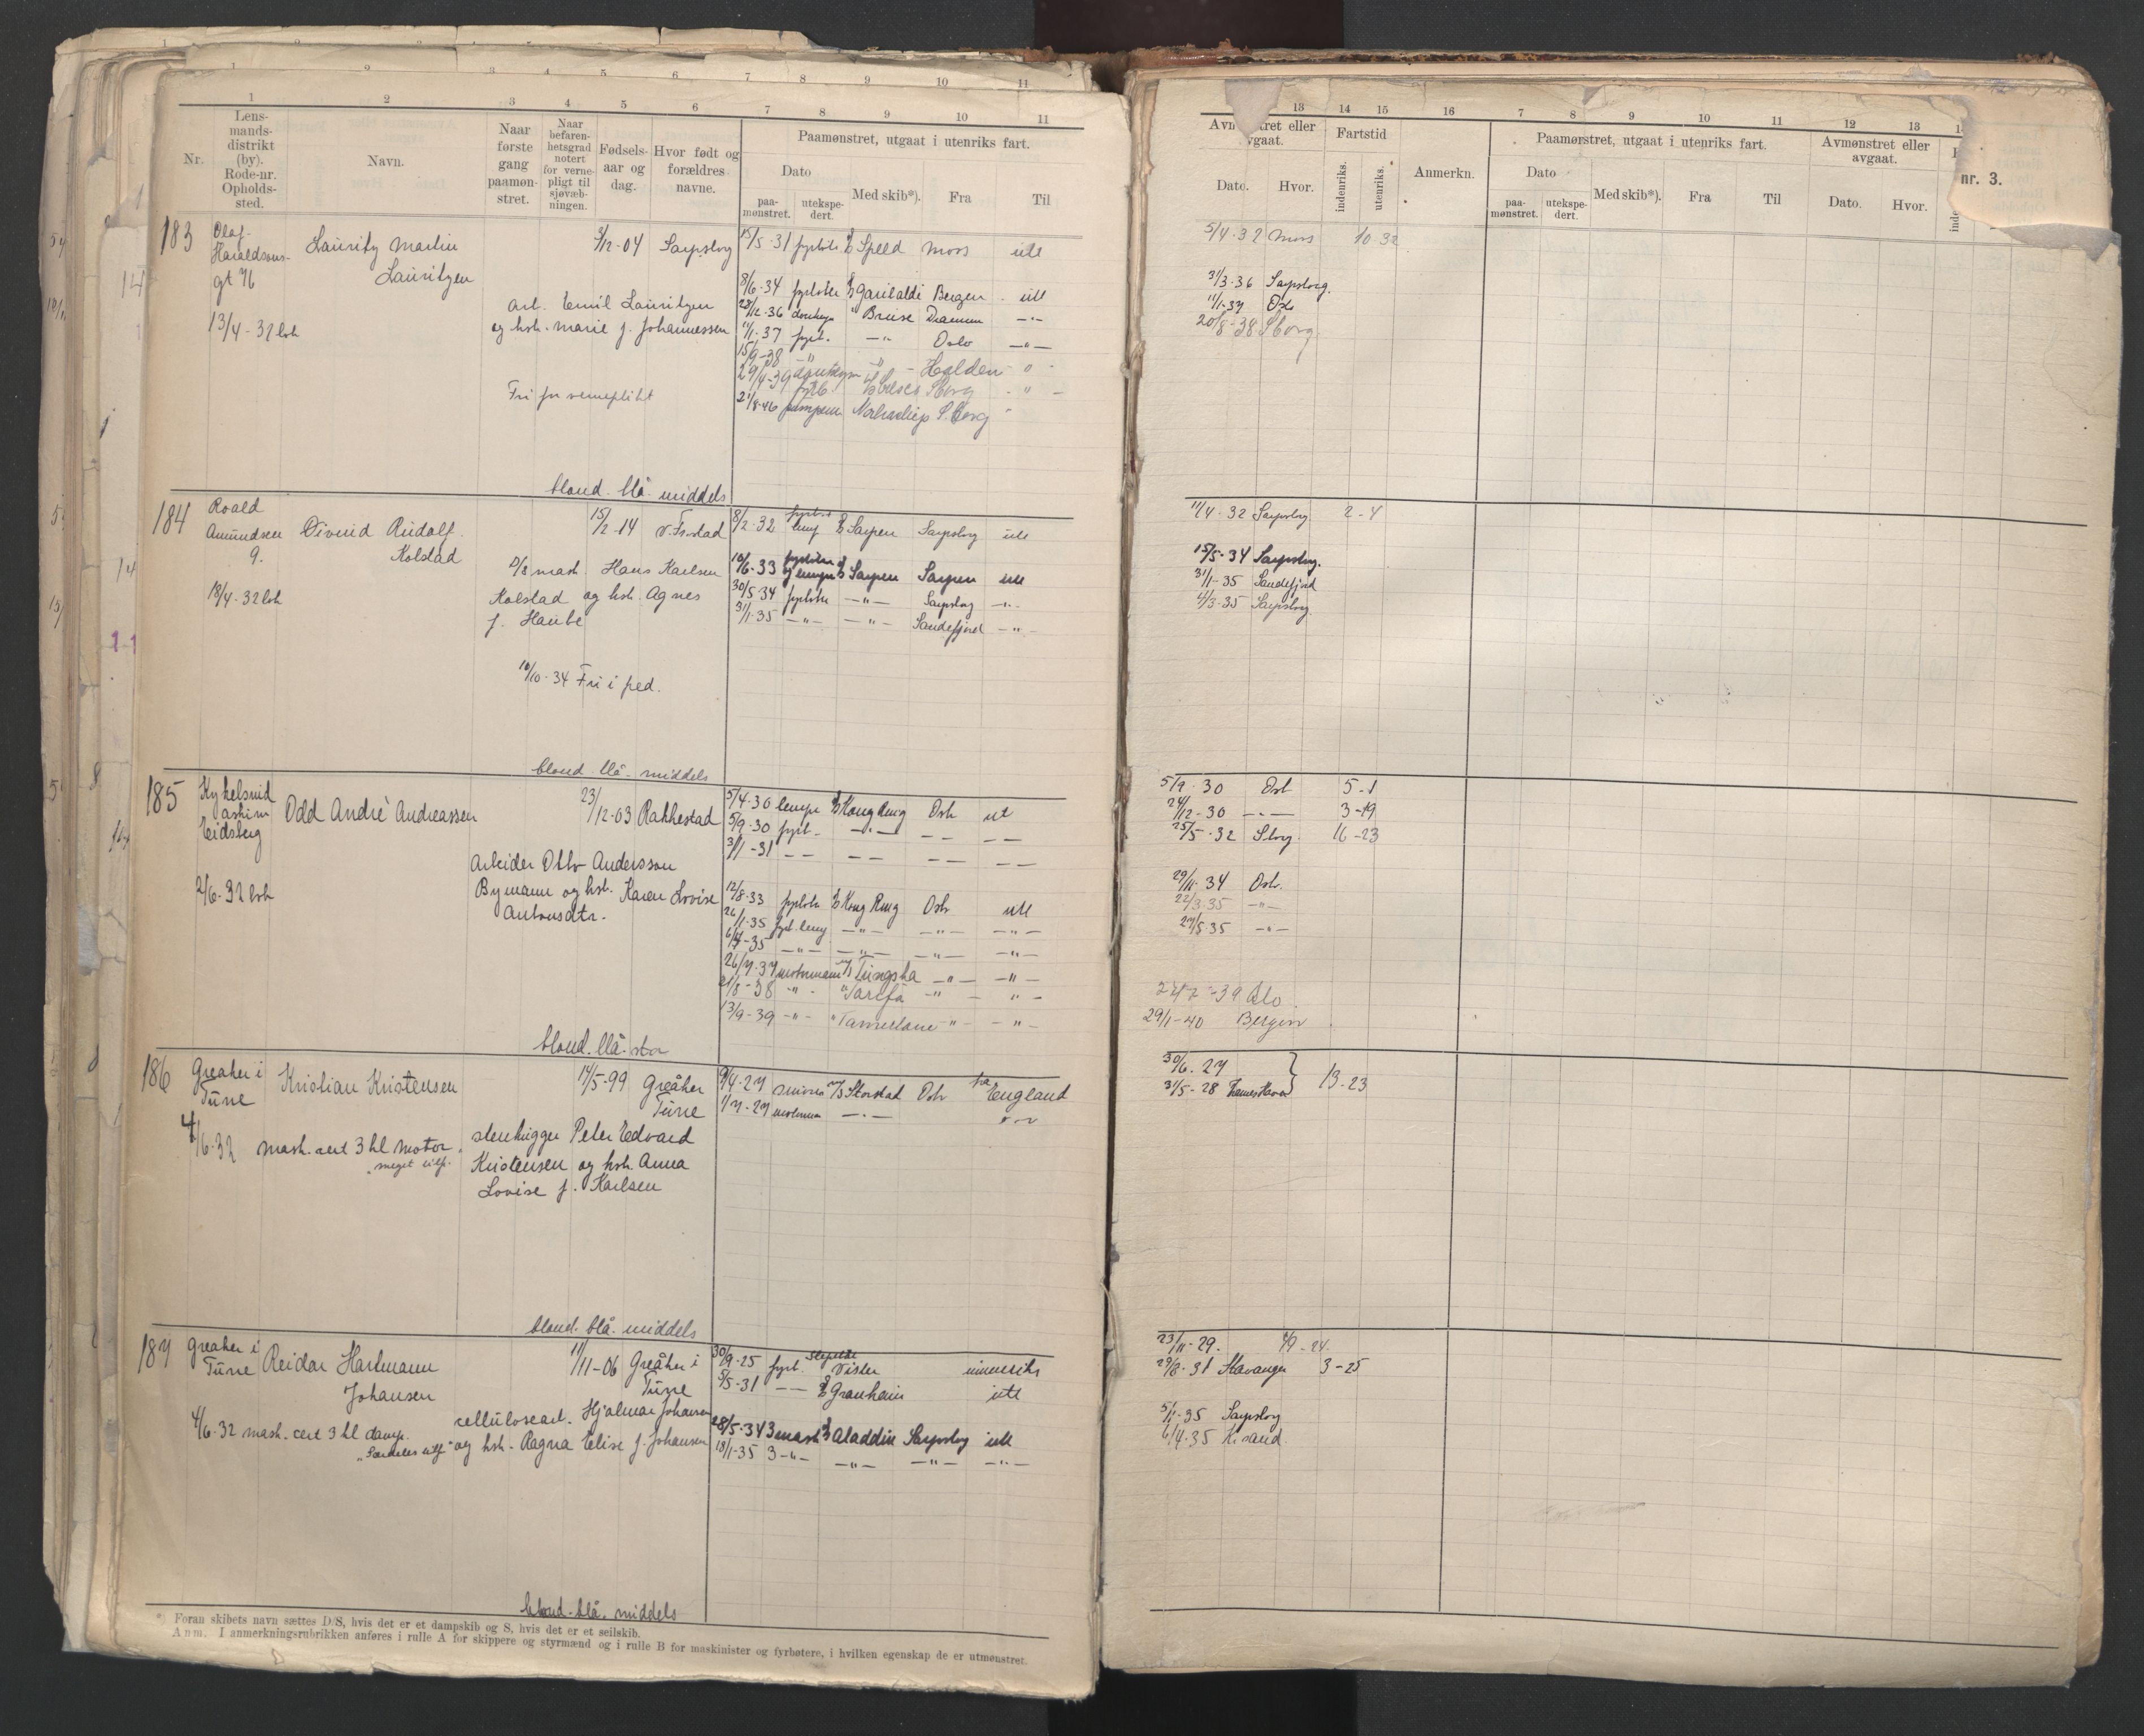 1 2 3 4 5 6 7 8 9 10 11
Nr.
Lens-
mands-
distrikt
(by).
Rode-nr.
Opholds-
sted.
Navn.
Naar
første
gang
paamøn-
stret.
Naar
befaren-
hetsgrad
notert
for verne-
pligt til
sjøvæb-
ningen.
Fødsels-
aar og
dag.
Hvor født og
forældres
navne.
Paamønstret, utgaat i utenriks fart.
Dato
paa-
mønstret.
utekspe-
dert.
Med skib*).
Fra
Til
183 Olaf Haraldsons-
gt
13/4-32
Lauritz Martin
Lauritzen
8/12-04 Sarpsborg
arb. Emil Lauritzen
og hst. Marie f. Johannessen
Fri for verneplikt
15/5-31 fyrbøter D/S Speed Moss ut
8/6-34 fyrbøter D/S Garibaldi Bergen utl
28/12-36 donkeym " Bruse Drammen -"-
11/1-37 fyrb. -"- Oslo -"-
15/9-38 -"- -"- Halden "
29/4-39
21/8-46 S.borg
blond. blå. middels
184 Roald
Amundsen
9.
18/4-32
Eivind Rudolf
Kolstad
15/2-14 V. Fr.stad
mask. Hans Karlsen
Kolstad og hst. Agnes
f. Haube
10/10-34 Fri i fred.
8/2-32 fyrb. lemp D/S Sarpen Sarpsborg utl
10/6-33 fyrbøter og lemper D/S Sarpen Sarpen utl
30/5-34 fyrbøter -"- Sarpsborg -"-
31/1-35 -"- -"- Sandefjord -"-
blond. blå. middels
185 Kykelsrud
Askim
Eidsberg
2/6-32
Odd Andrè Andreassen
23/12-03 Rakkestad
arbeider Otto Andersson
Bymann og hst. Karen Lovise
Antonsdtr.
5/4-30 lemper D/S Kong Ring Oslo ut
5/9-30 fyrb- -"- - - - -
3/1-31 - - - - - - - -
12/8-33 fyrbøter D/S Kong Ring Oslo utl
26/1-35 fyrb. lemp -"- -"- -"-
6/4-35 -"- -"- -"- -"-
26/7-37 motormann M/S Tungsha -"- -"-
21/8-38 -"- " Tarifa -"- "-
13/9-39 -"- " Tamerlane -"- -"-
blond. blå. stor
186 Greåker i
Tune
4/6-32 mask. cert 3 kl motor
"meget
Kristian Kristensen
17/5-99 Greåker
Tune
stenhugger Peter Edvard
Kristensen og hst. Anna
Lovise f. Karlsen
9/4-27 M/S Storstad Oslo fra England
1/7-27 motormann -"-
blond. blå. middels
187 Greåker i
Tune
4/6-32 mask. cert 3 kl damp.
Reidar Hartmann
Johansen
11/11-06 Greåker i
Tune
cellulosearb. Hjalmar Johansen
og hst. Ragna Elise f. Johansen
30/9-25 fyrb. Vister innenriks
5/5-31 - - D/S Granheim utl
28/5-34 3 mask D/S Aladdin Sarpsborg utl
18/1-35 3 -"- -"- -"- -"-
blond. blå. middels
*) Foran skibets navn sættes D/S, hvis det er et dampskib og S, hvis det er et seilskib.
Anm. I anmerkningsrubrikken anføres i rulle A for skippere og styrmænd og i rulle B for maskinister og fyrbøtere, i hvilken egenskap de er utmønstret.
13 14 15 16 7 8 9 10 11 12 13
Dato. Hvor.
Fartstid
indenriks.
utenriks.
Anmerkn.
Paamønstret, utgaat i utenriks fart.
Dato
paa-
mønstret.
utekspe-
dert.
Med skib*).
Fra
Til
Avmønstret eller
avgaat.
Dato. Hvor.
nr. 3.
5/4-32 Moss 10-32
31/3-36 Sarpsborg.
11/1-37 Oslo
20/8-38 S.borg
11/4-32 Sarpsborg 2-4
15/5-34 Sarpsborg.
31/1-35 Sandefjord
4/3-35 Sarpsborg.
5/9-30 Oslo 5-1
24/12-30 -"- 3-19
25/5-32 S.borg. 16-23
29/11-34 Oslo.
22/3-35 -"-
27/5-35 -"-
24/7-39 Oslo.
29/1-40 Bergen
30/6-27
31/5-28 13-23
23/11-29.
29/8-31 Stavanger 3-25
5/1-35 Sarpsborg
6/4-35 Kr.sand.